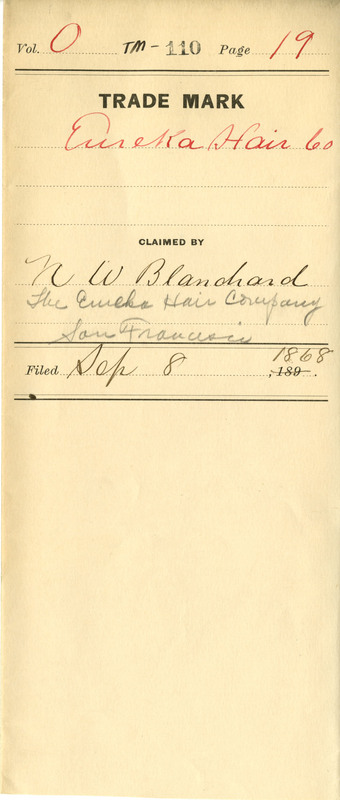 Vol. O TM-110 Page 19
TRADE MARK
Eureka Hair Co
CLAIMED BY
N W Blanchard
The Eureka Hair Company
San Francisco
1868
Filed Sep 8 , 189 .